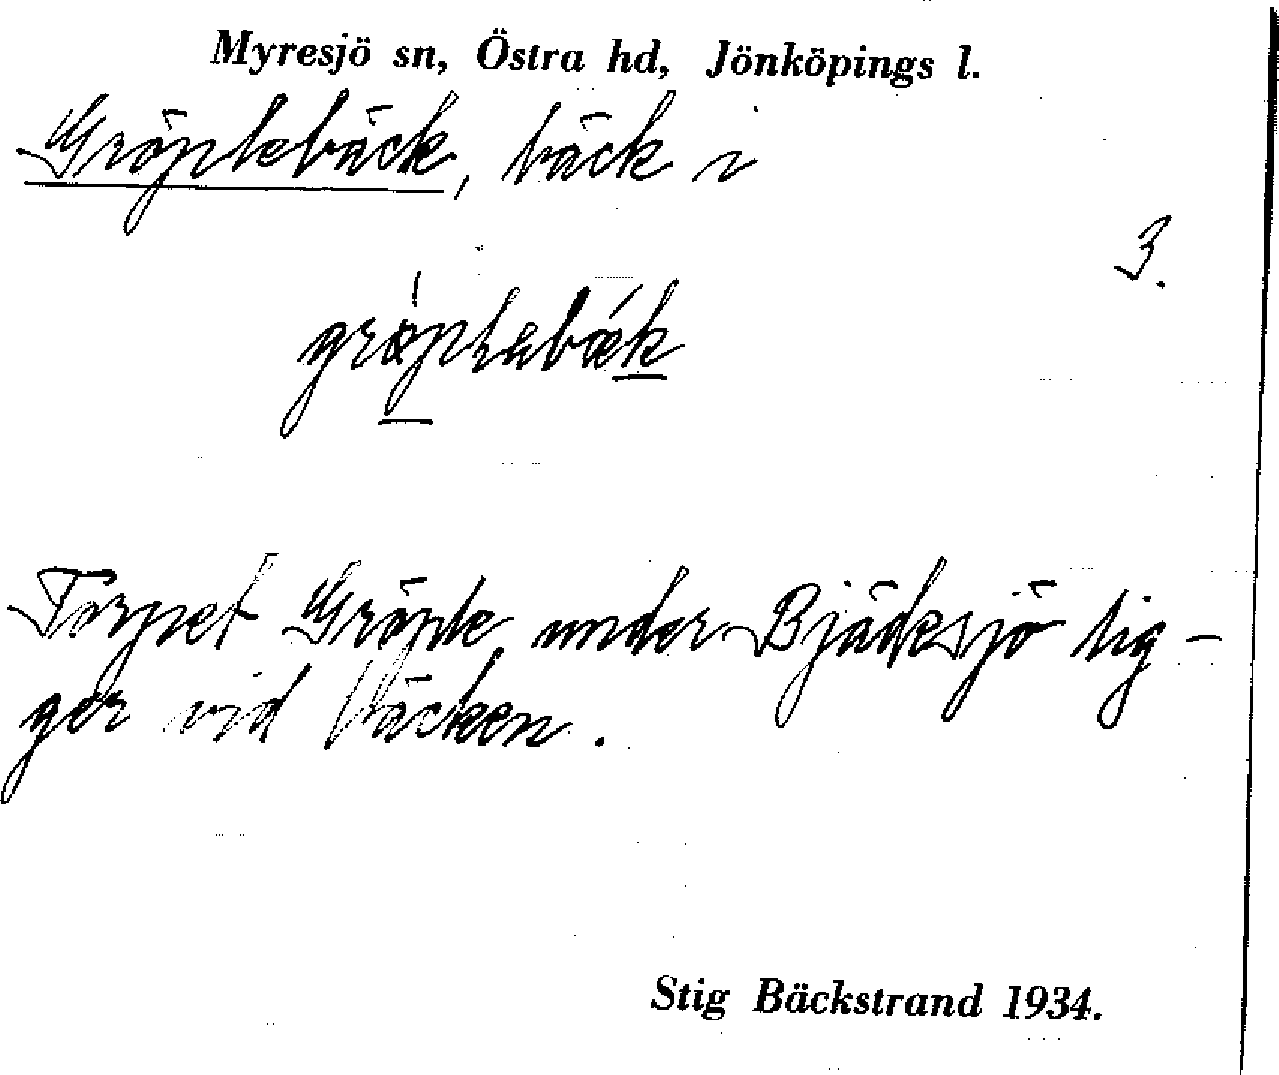 Myresjö sn, Östra hd, Jönköpings l.
Gröplebäck, bäck i
3.
Torpet Gröple under Bjädesjö lig-
ger vid bäcken.
Stig Bäckstrand 1934.